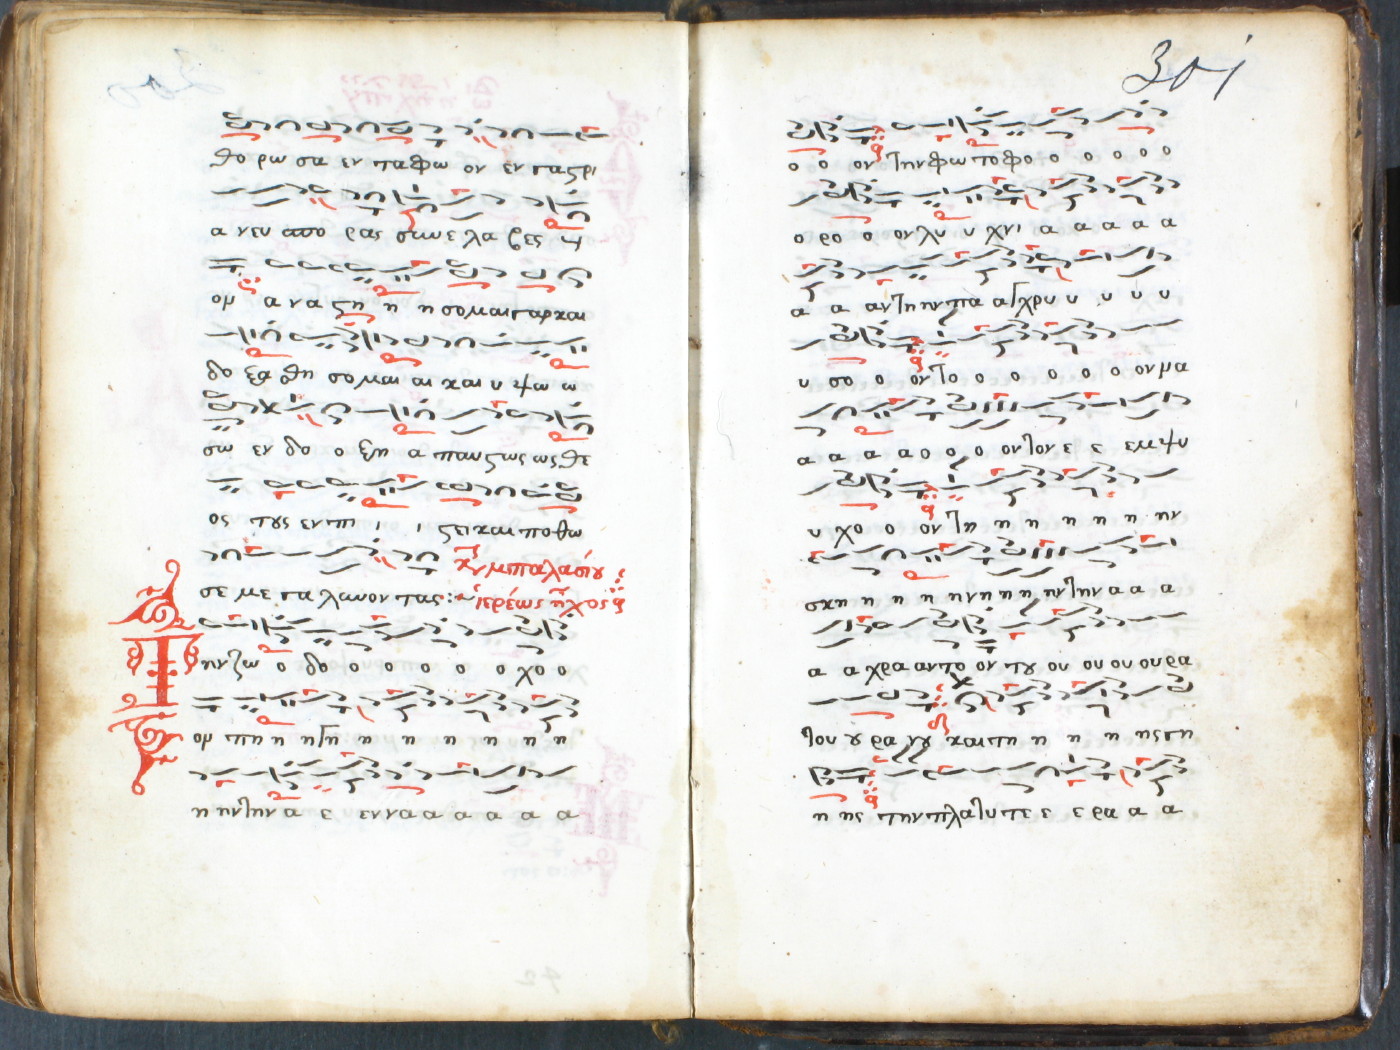 θο ρω σα εν τα φω ον εν γα ϛρι
α νευ ασο ρας σιω ε λα βες ψ
ορ α να ϛη η η σομαι γαρ και
δο ξα θη σο μαι αι και υ ψω ω
σω εν δο ξη α παυϛως ως θε
ος τȣς εν π ι ϛει και ποθω
σε με γα λυνον τας :~
μπαλασίȣ
ἱερέως ἦχος
Τ
ην ζω ο δο ο ο ο ο ο χο ο
ορ πη η η Γη η η η η η η
η ην Την α ε εν να α α α α α
301
ο ο ον Την φω το φο ο ο ο ο ο
ο ρο ο ον λυ υ χνι α α α α α
α α αν Την υπα αΓχρυ υ υ υ υ
υ σο ο ον Το ο ο ο ο ο ον μα
α α α α ο ο ο ον Τον ε ε εμ ψυ
υ χο ο ον Τη η η η η η ην
σκη η η η ην η η η ην Την α α α
α α χρα αν το ον τȣ ου ου ου ου ρα
Του ȣ ρα νȣ και τη η η η ης γη
η ης την πλα Τυ τε ε ε ρα α α